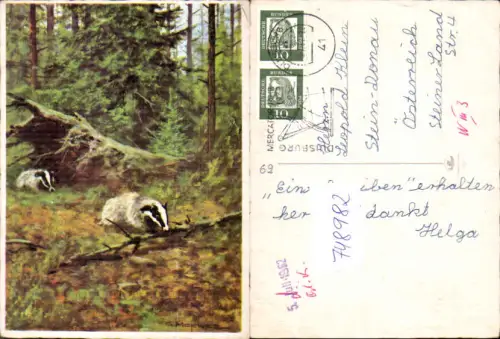 DEUTSCHE
BUNDESPOST
10
DEUTSCHE
BUNDESPOST
10
41
MERCAT
SBURG
Herrn
Leopold Klein
Stein-Donau
Österreich
Steiner Land
Str. 4
IV m 3
69
"Ein iben" erhalten
ker dankt
Helga
748982
5. Juli 1962